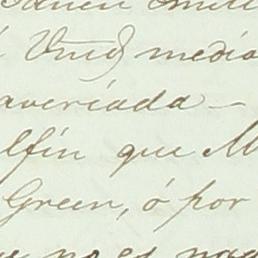 Vmd medio
averiada —
lfin que M
Green, ó por
no es